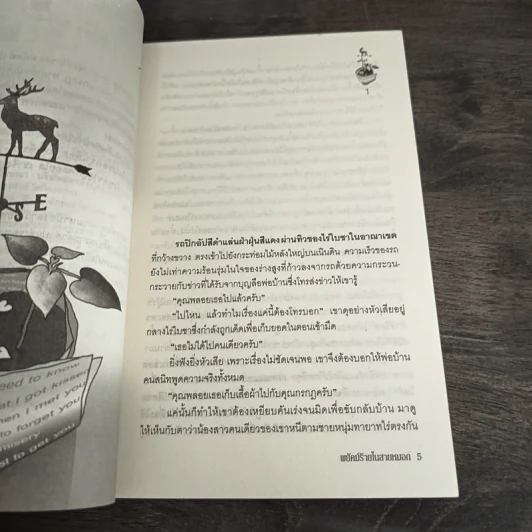 S
E
need to know
that I got kissed
when I met you
to forget you
misery
1
รถปิกอัปสีดำแล่นฝ่าฝุ่นสีแดงผ่านทิวของไร่ใบชาในอาณาเขต
ที่กว้างขวาง ตรงเข้าไปยังกระท่อมไม้หลังใหญ่บนเนินดิน ความเร็วของรถ
ยังไม่เท่าความร้อนรุ่มในใจของร่างสูงที่ก้าวลงจากรถด้วยความกระวน-
กระวายกับข่าวที่ได้รับจากบุญลือพ่อบ้านซึ่งโทรส่งข่าวให้เขารู้
“คุณพลอยเธอไปแล้วครับ”
“ไปไหน แล้วทำไมเรื่องแค่นี้ต้องโทรบอก” เขาดุอย่างหัวเสียอยู่
กลางไร่ใบชาซึ่งกำลังถูกเด็ดเพื่อเก็บยอดในตอนเช้ามืด
“เธอไม่ได้ไปคนเดียวครับ”
ยิ่งฟังยิ่งหัวเสีย เพราะเรื่องไม่ชัดเจนพอ เขาจึงต้องบอกให้พ่อบ้าน
คนสนิทพูดความจริงทั้งหมด
“คุณพลอยเธอเก็บเสื้อผ้าไปกับคุณกรกฎครับ”
แค่นั้นก็ทำให้เขาต้องเหยียบคันเร่งจนมิดเพื่อขับกลับบ้าน มาดู
ให้เห็นกับตาว่าน้องสาวคนเดียวของเขาหนีตามชายหนุ่มทายาทไร่ตรงกัน
พยัคฆ์ร้ายในสายหมอก 5